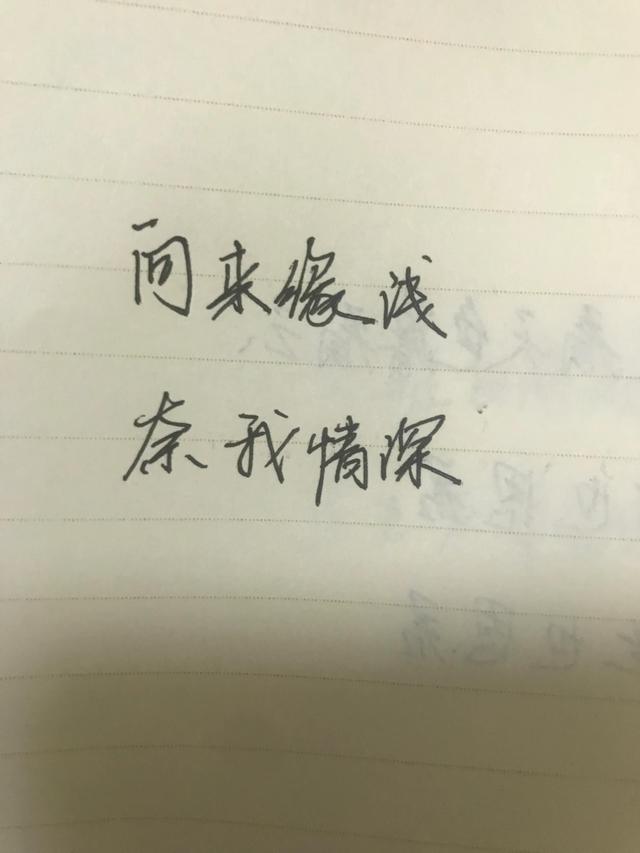 向来缘浅
奈我情深